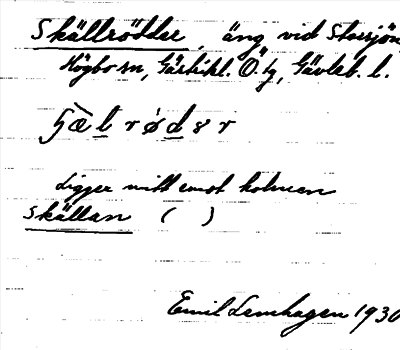 Skällrödder, äng vid Storsjön
Högbo sn, Gästrikl. Ö. tg, Gävleb. l.
ꞕæ̀lrødər
Ligger mitt emot holmen
Skällan ( )
Emil Lemhagen 1930